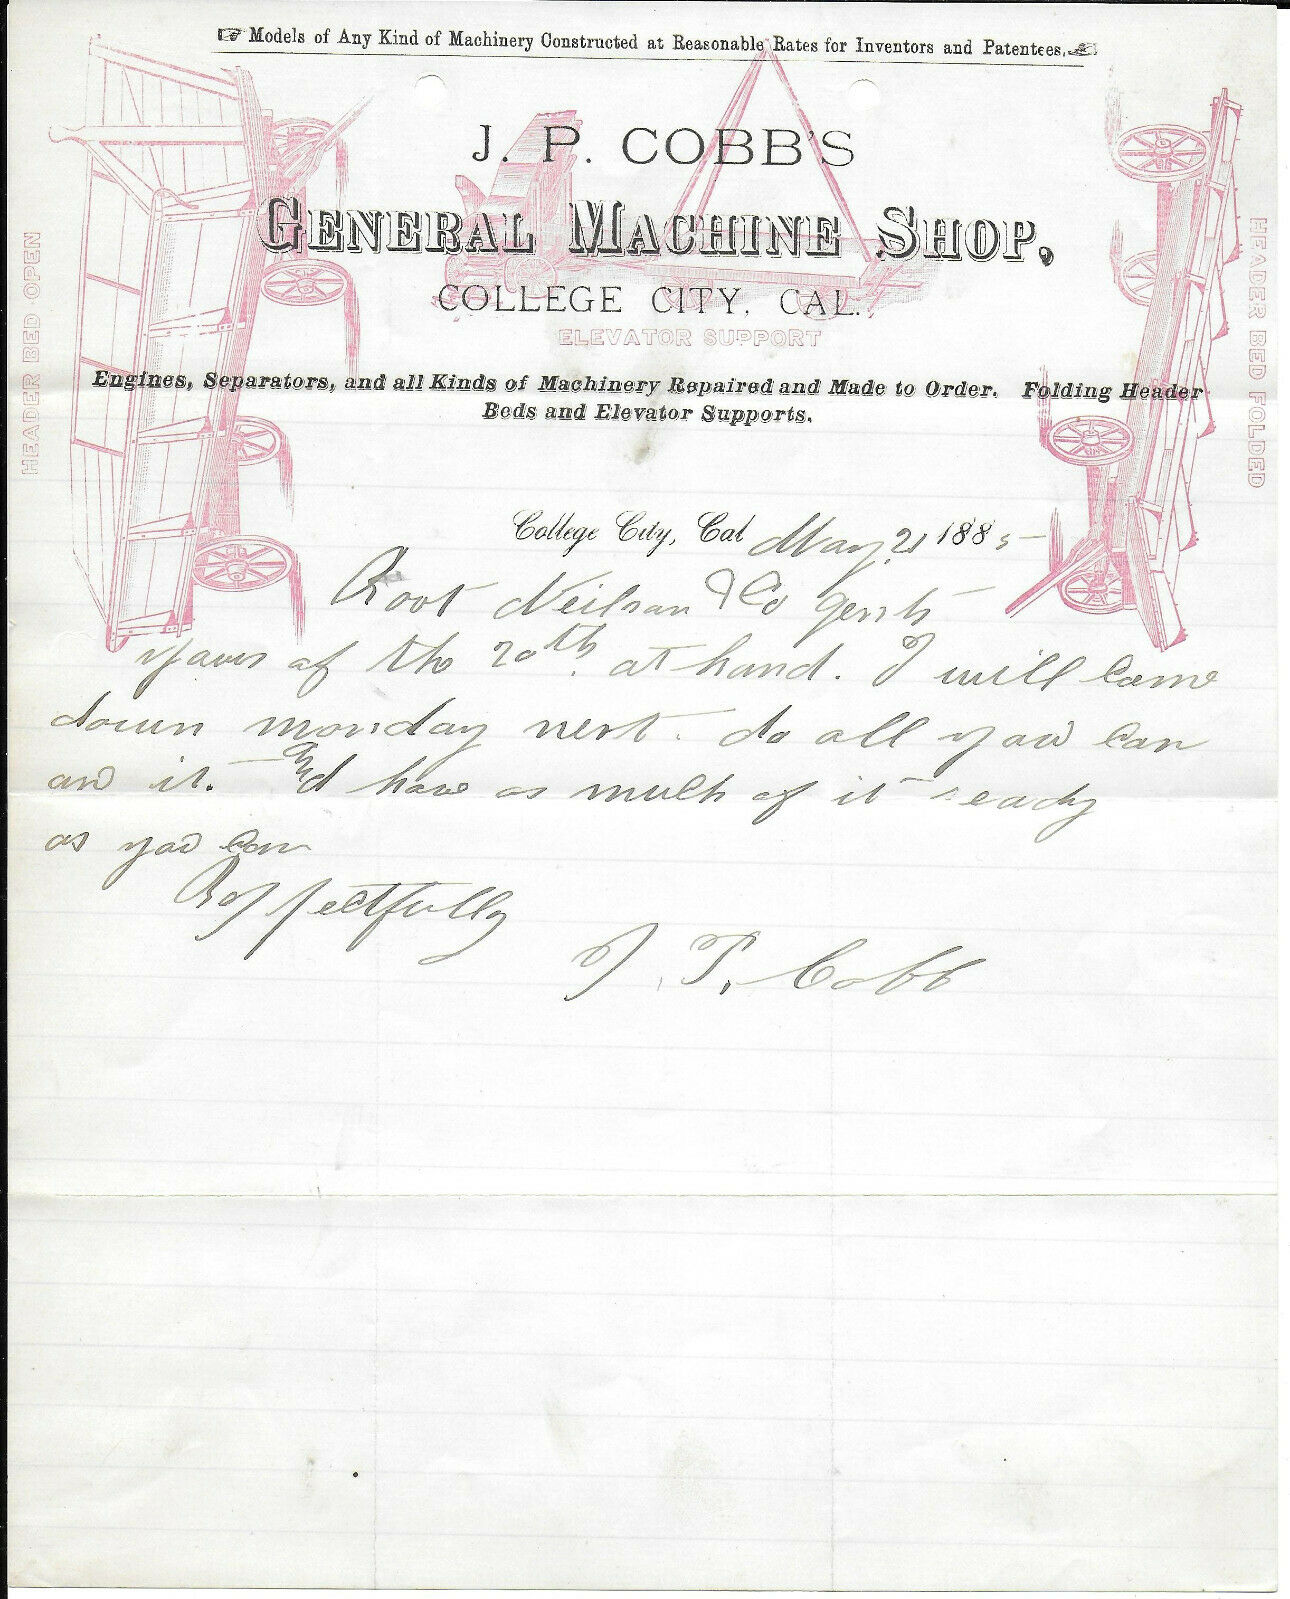 Models of Any Kind of Machinery Constructed at Reasonable Rates for Inventors and Patentees.
J. P. COBB'S
GENERAL MACHINE SHOP,
COLLEGE CITY, CAL.
ELEVATOR SUPPORT
HEADER BED OPEN
HEADER BED FOLDED
Engines, Separators, and all Kinds of Machinery Repaired and Made to Order. Folding Header
Beds and Elevator Supports.
College City, Cal May 21 1885
Root Neilson & Co gents
yours of the 20th. at hand. I will come
down monday next. do all you can
on it. And have as much of it ready
as you can
Respectfully
J. P. Cobb